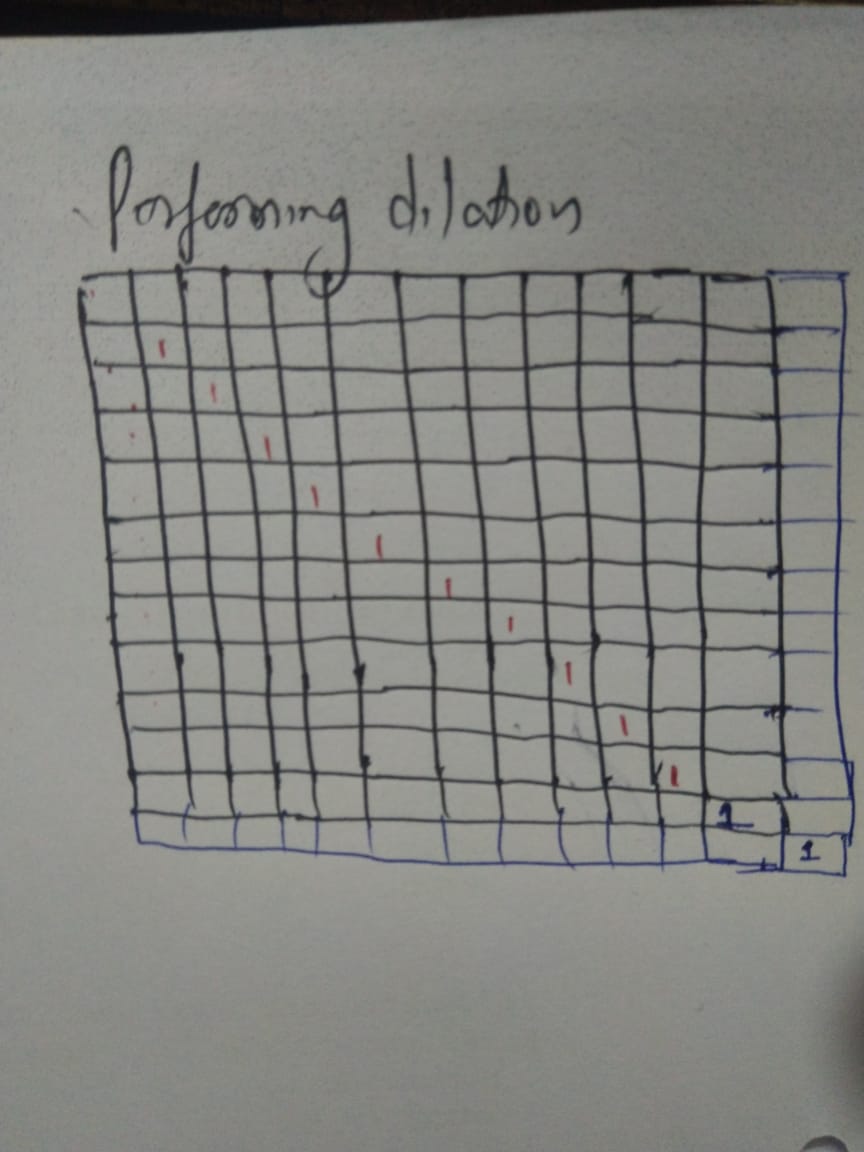 Performing dilation
1
1
1
1
1
1
1
1
1
1
1
1